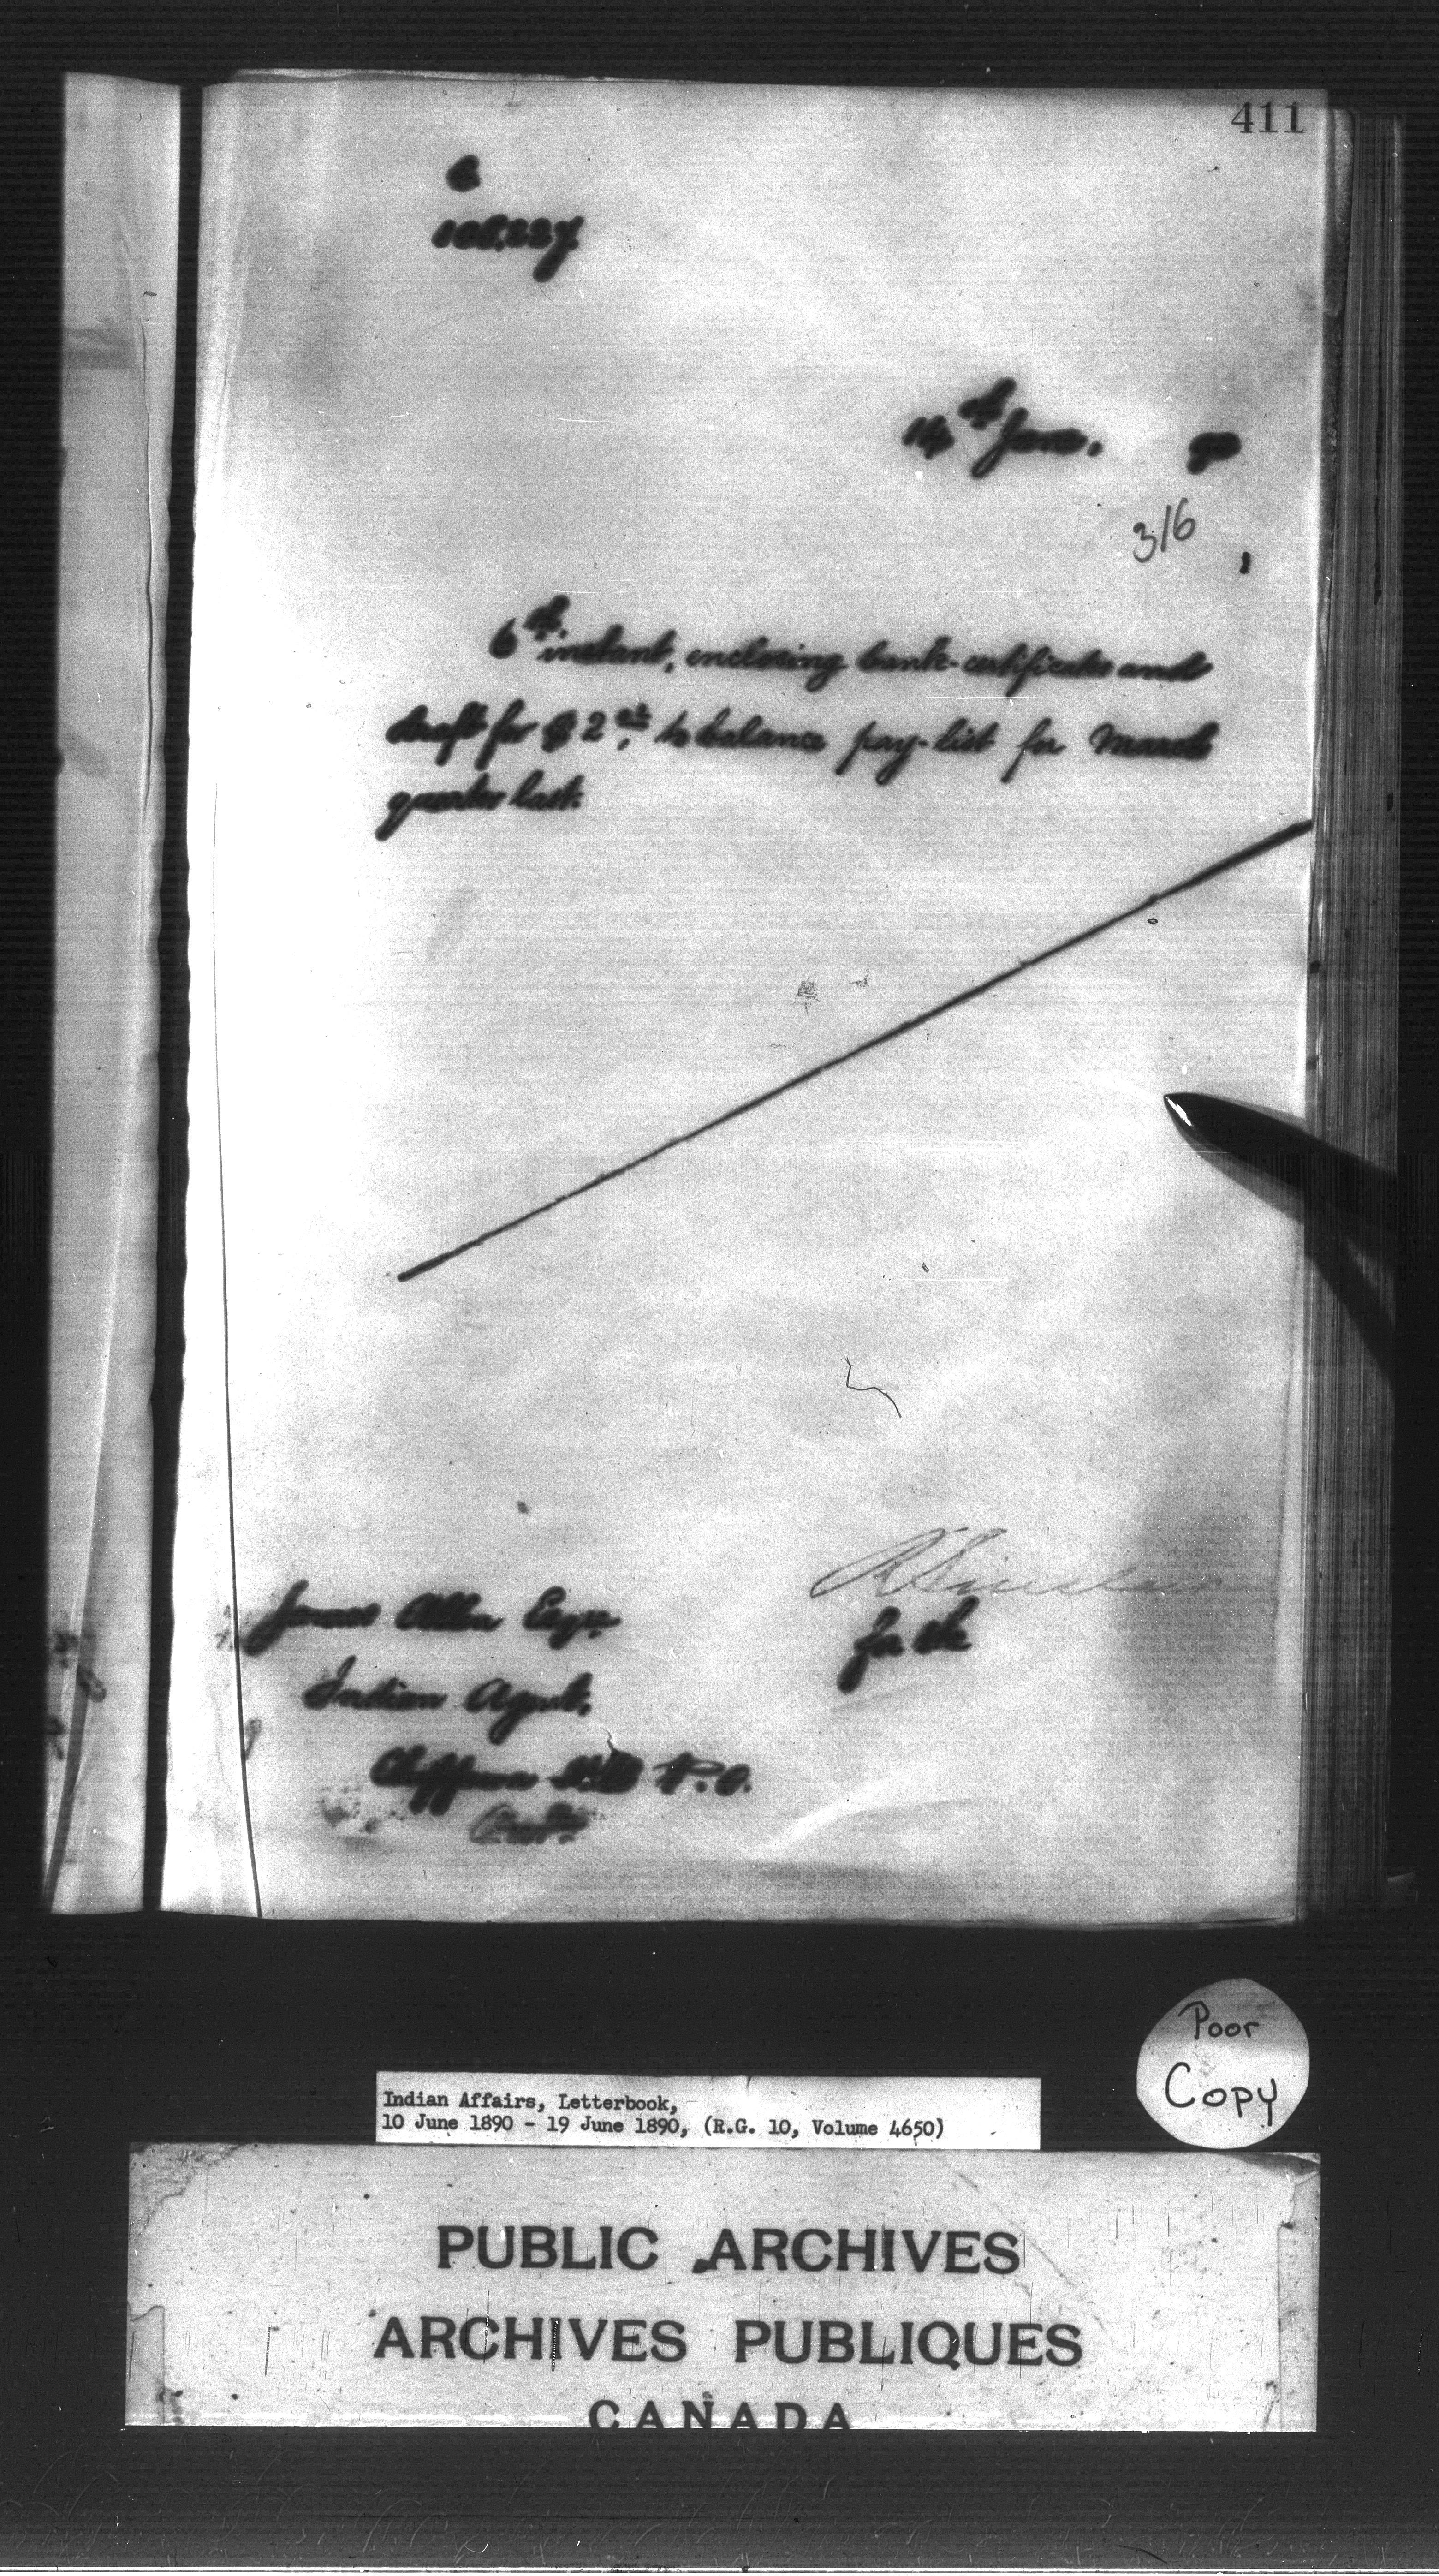 411
C.
108,227.
14th June, 90
316
6th instant, enclosing bank-certificate and
draft for $2 to balance pay-list for March
quarter last.
R Sinclair
for the
James Allen Esqre
Indian Agent,
Chippewa Hill P.O.
Ont.
Poor
Copy
Indian Affairs, Letterbook,
10 June 1890 - 19 June 1890, (R.G. 10, Volume 4650)
PUBLIC ARCHIVES
ARCHIVES PUBLIQUES
CANADA